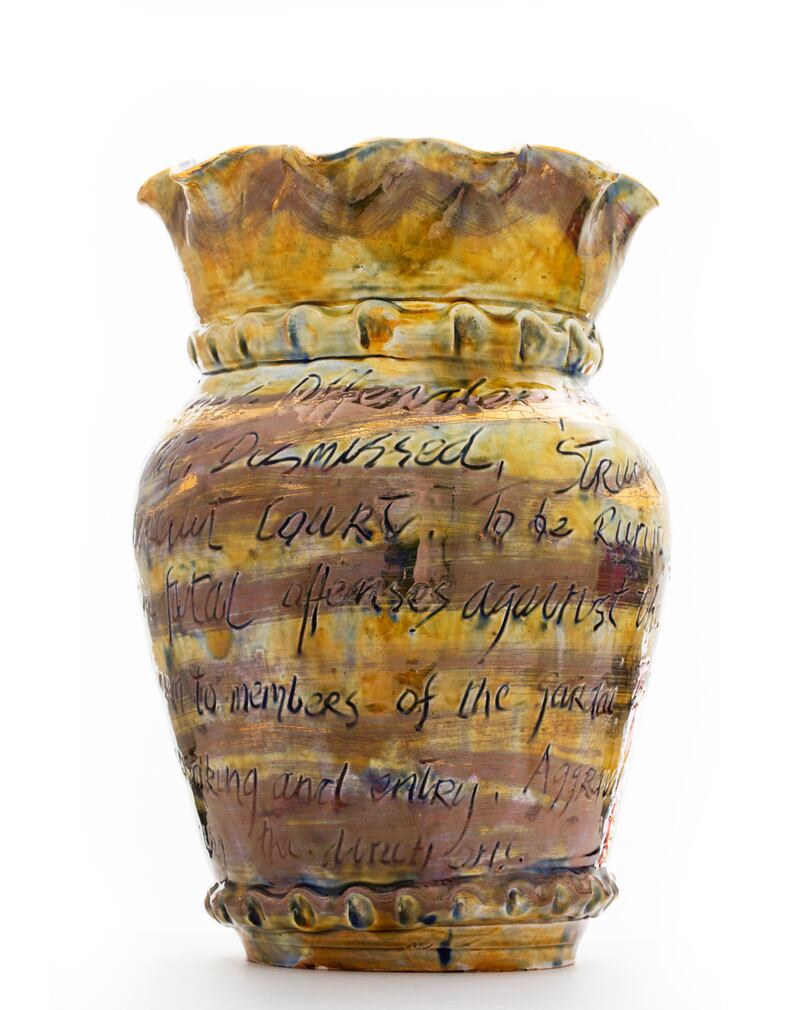 Offender
Dismissed, Struc
Court. To be Runn
fatal offenses against th
to members of the garda
aking and entry. Aggrav
the directions.